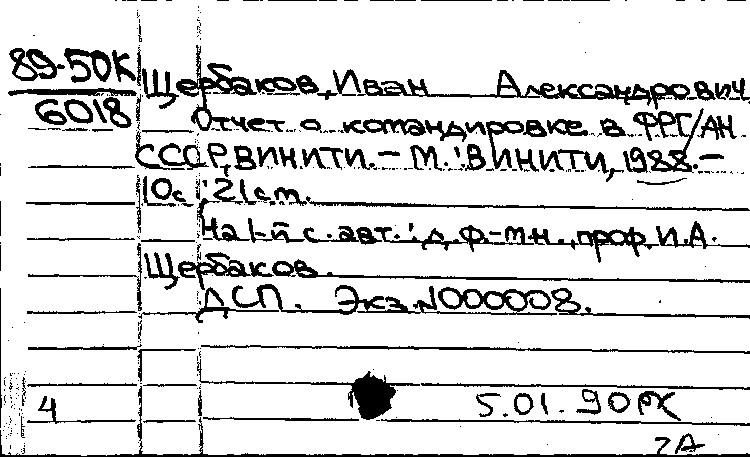 89-50К
6018
Щербаков, Иван Александрович
Отчет о командировке в ФРГ/АН
СССР, ВИНИТИ. – М.: ВИНИТИ, 1988. –
10с.; 21 ст.
На 1-й с. авт.: д. ф.-м.н., проф. И.А.
Щербаков.
ДСП. Экз. N000008.
4
5.01.90 РК
2А